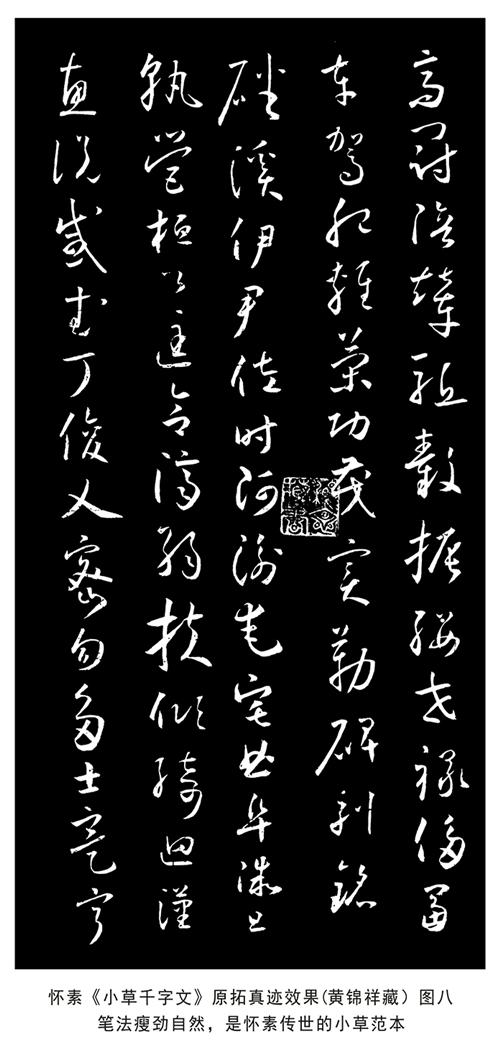 高冠陪輦驅轂振纓世祿侈富
車駕肥輕策功茂實勒碑刻銘
磻溪伊尹佐時阿衡奄宅曲阜微旦
孰營桓公匡合濟弱扶傾綺迴漢
惠說感武丁俊乂密勿多士寔寧
怀素《小草千字文》原拓真迹效果(黄锦祥藏）图八
笔法瘦劲自然，是怀素传世的小草范本